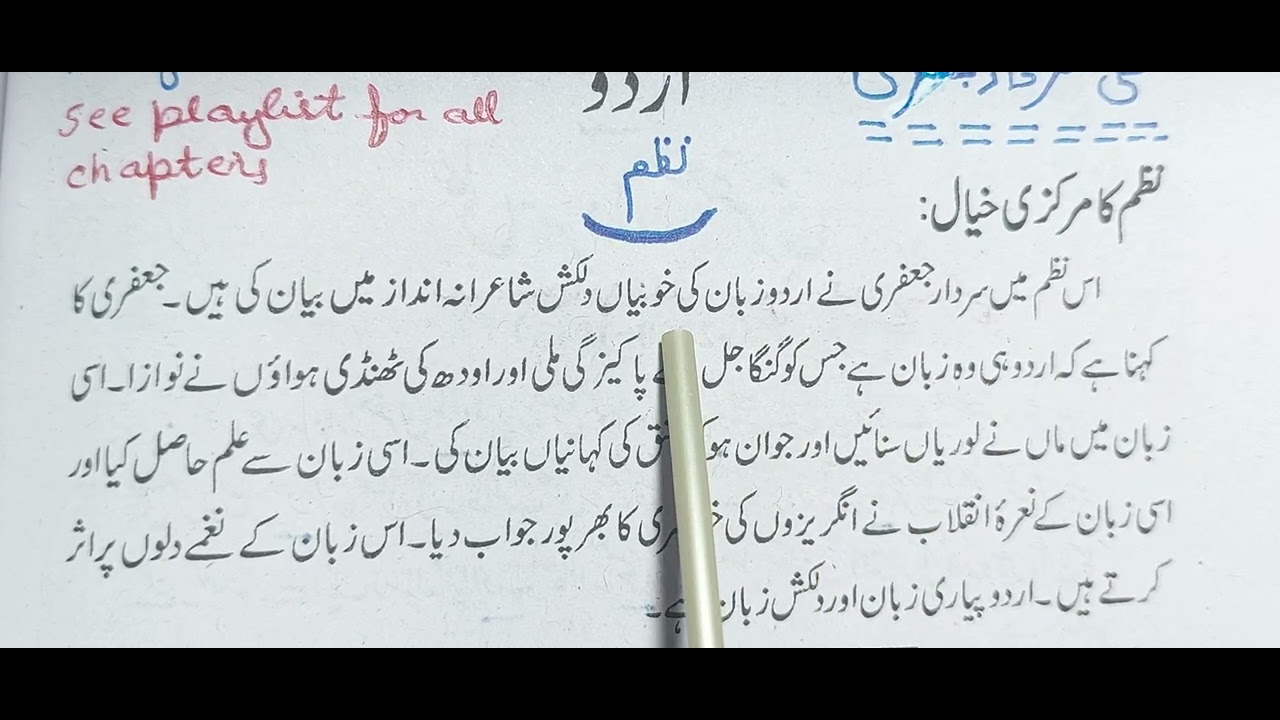 اردو
see playlist for all
chapters
نظم
نظم کا مرکزی خیال:
اس نظم میں سردار جعفری نے اردو زبان کی خوبیاں دلکش شاعرانہ انداز میں بیان کی ہیں۔ جعفری کا
کہنا ہے کہ اردو ہی وہ زبان ہے جس کو گنگا جل پاکیزگی ملی اور اودھ کی ٹھنڈی ہواؤں نے نوازا۔ اسی
زبان میں ماں نے لوریاں سنائیں اور جوان ہو کی کہانیاں بیان کی۔ اسی زبان سے علم حاصل کیا اور
اسی زبان کے نعرۂ انقلاب نے انگریزوں کی کا بھرپور جواب دیا۔ اس زبان کے نغمے دلوں پر اثر
کرتے ہیں۔ اردو پیاری زبان اور دلکش زبان ہے۔